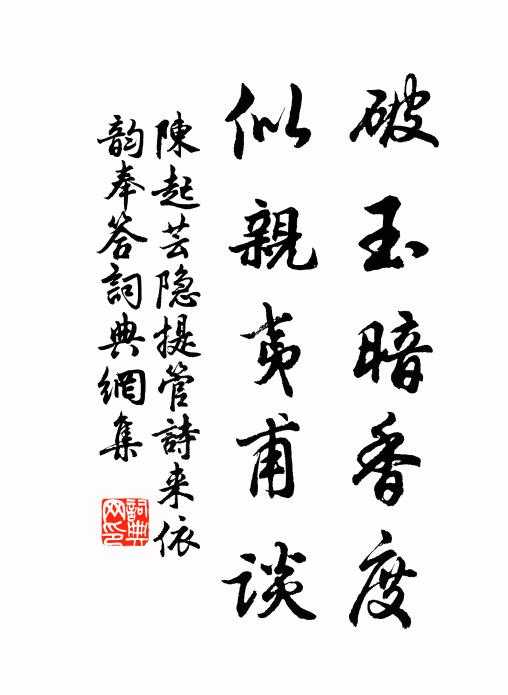 破玉暗香度
似親夷甫談
陳起芸隐提管詩来依
韵奉答詞典網集
詞典
网印